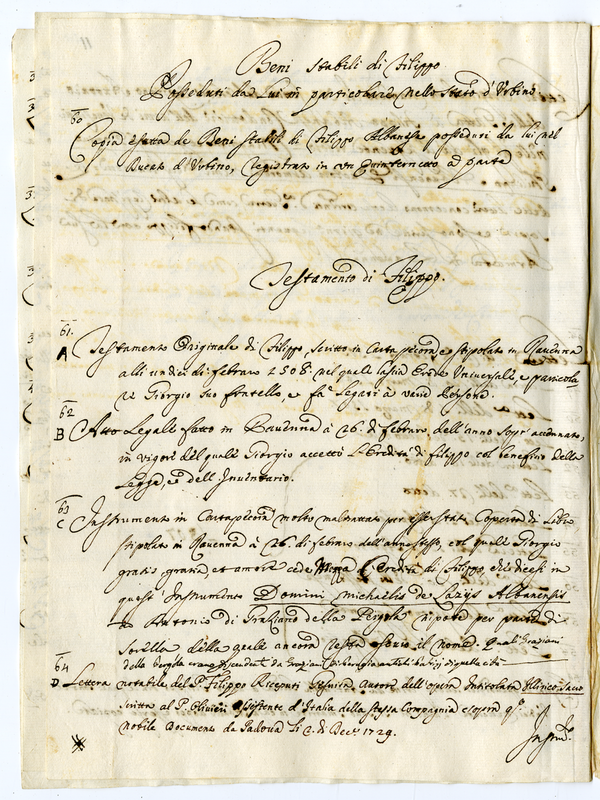 11
Beni Stabili di Filippo
Posseduti da Lui in particolare nello Stato d'Urbino
60
Copia esatta de Beni Stabili di Filippo Albanese posseduti da lui nel
Ducato d'Urbino, registrato in un Quinternetto a parte
Testamento di Filippo.
61.
A Testamento Originale di Filippo, scritto in Cartapecora e stipolato in Ravenna
alli undici di febraro 1508: nel quale lascia Erede Universale, e particola
re Giorgio suo fratello, e fa Legati à varie Persone.
62
B Atto Legale fatto in Ravenna à 26. di febraro dell'anno sopr' accennato,
in vigore del quale Giorgio accettò l'Eredità di Filippo col beneficio della
Legge, e dell' Inventario.
63
C Instrumento in Cartapecora molto maltrattato per esser stato Coperta di Libro
stipolato in Ravenna à 26. di febraro dell'anno stesso, col quale Giorgio
gratis, gratia, et amore cede l'Eredità di Filippo, che dicesi in
questo Instrumento Domini Michaelis de Lazijs Albanensis
Antonio di Graziano della Pergola nipote per parte di
Sorella della quale ancora resta oscuro il nome. Quali Graziani
della Pergola erano discendenti da Graziani di Perugia antichi di quella città
64
D Lettera notabile del P. Filippo Riceputi Gesuita autore dell'opera intitolata Illirico Sacro
scritta al P. Olivieri Assistente d'Italia della stessa Compagnia
nobile Documento da Padova li 2. di Decre 1729.